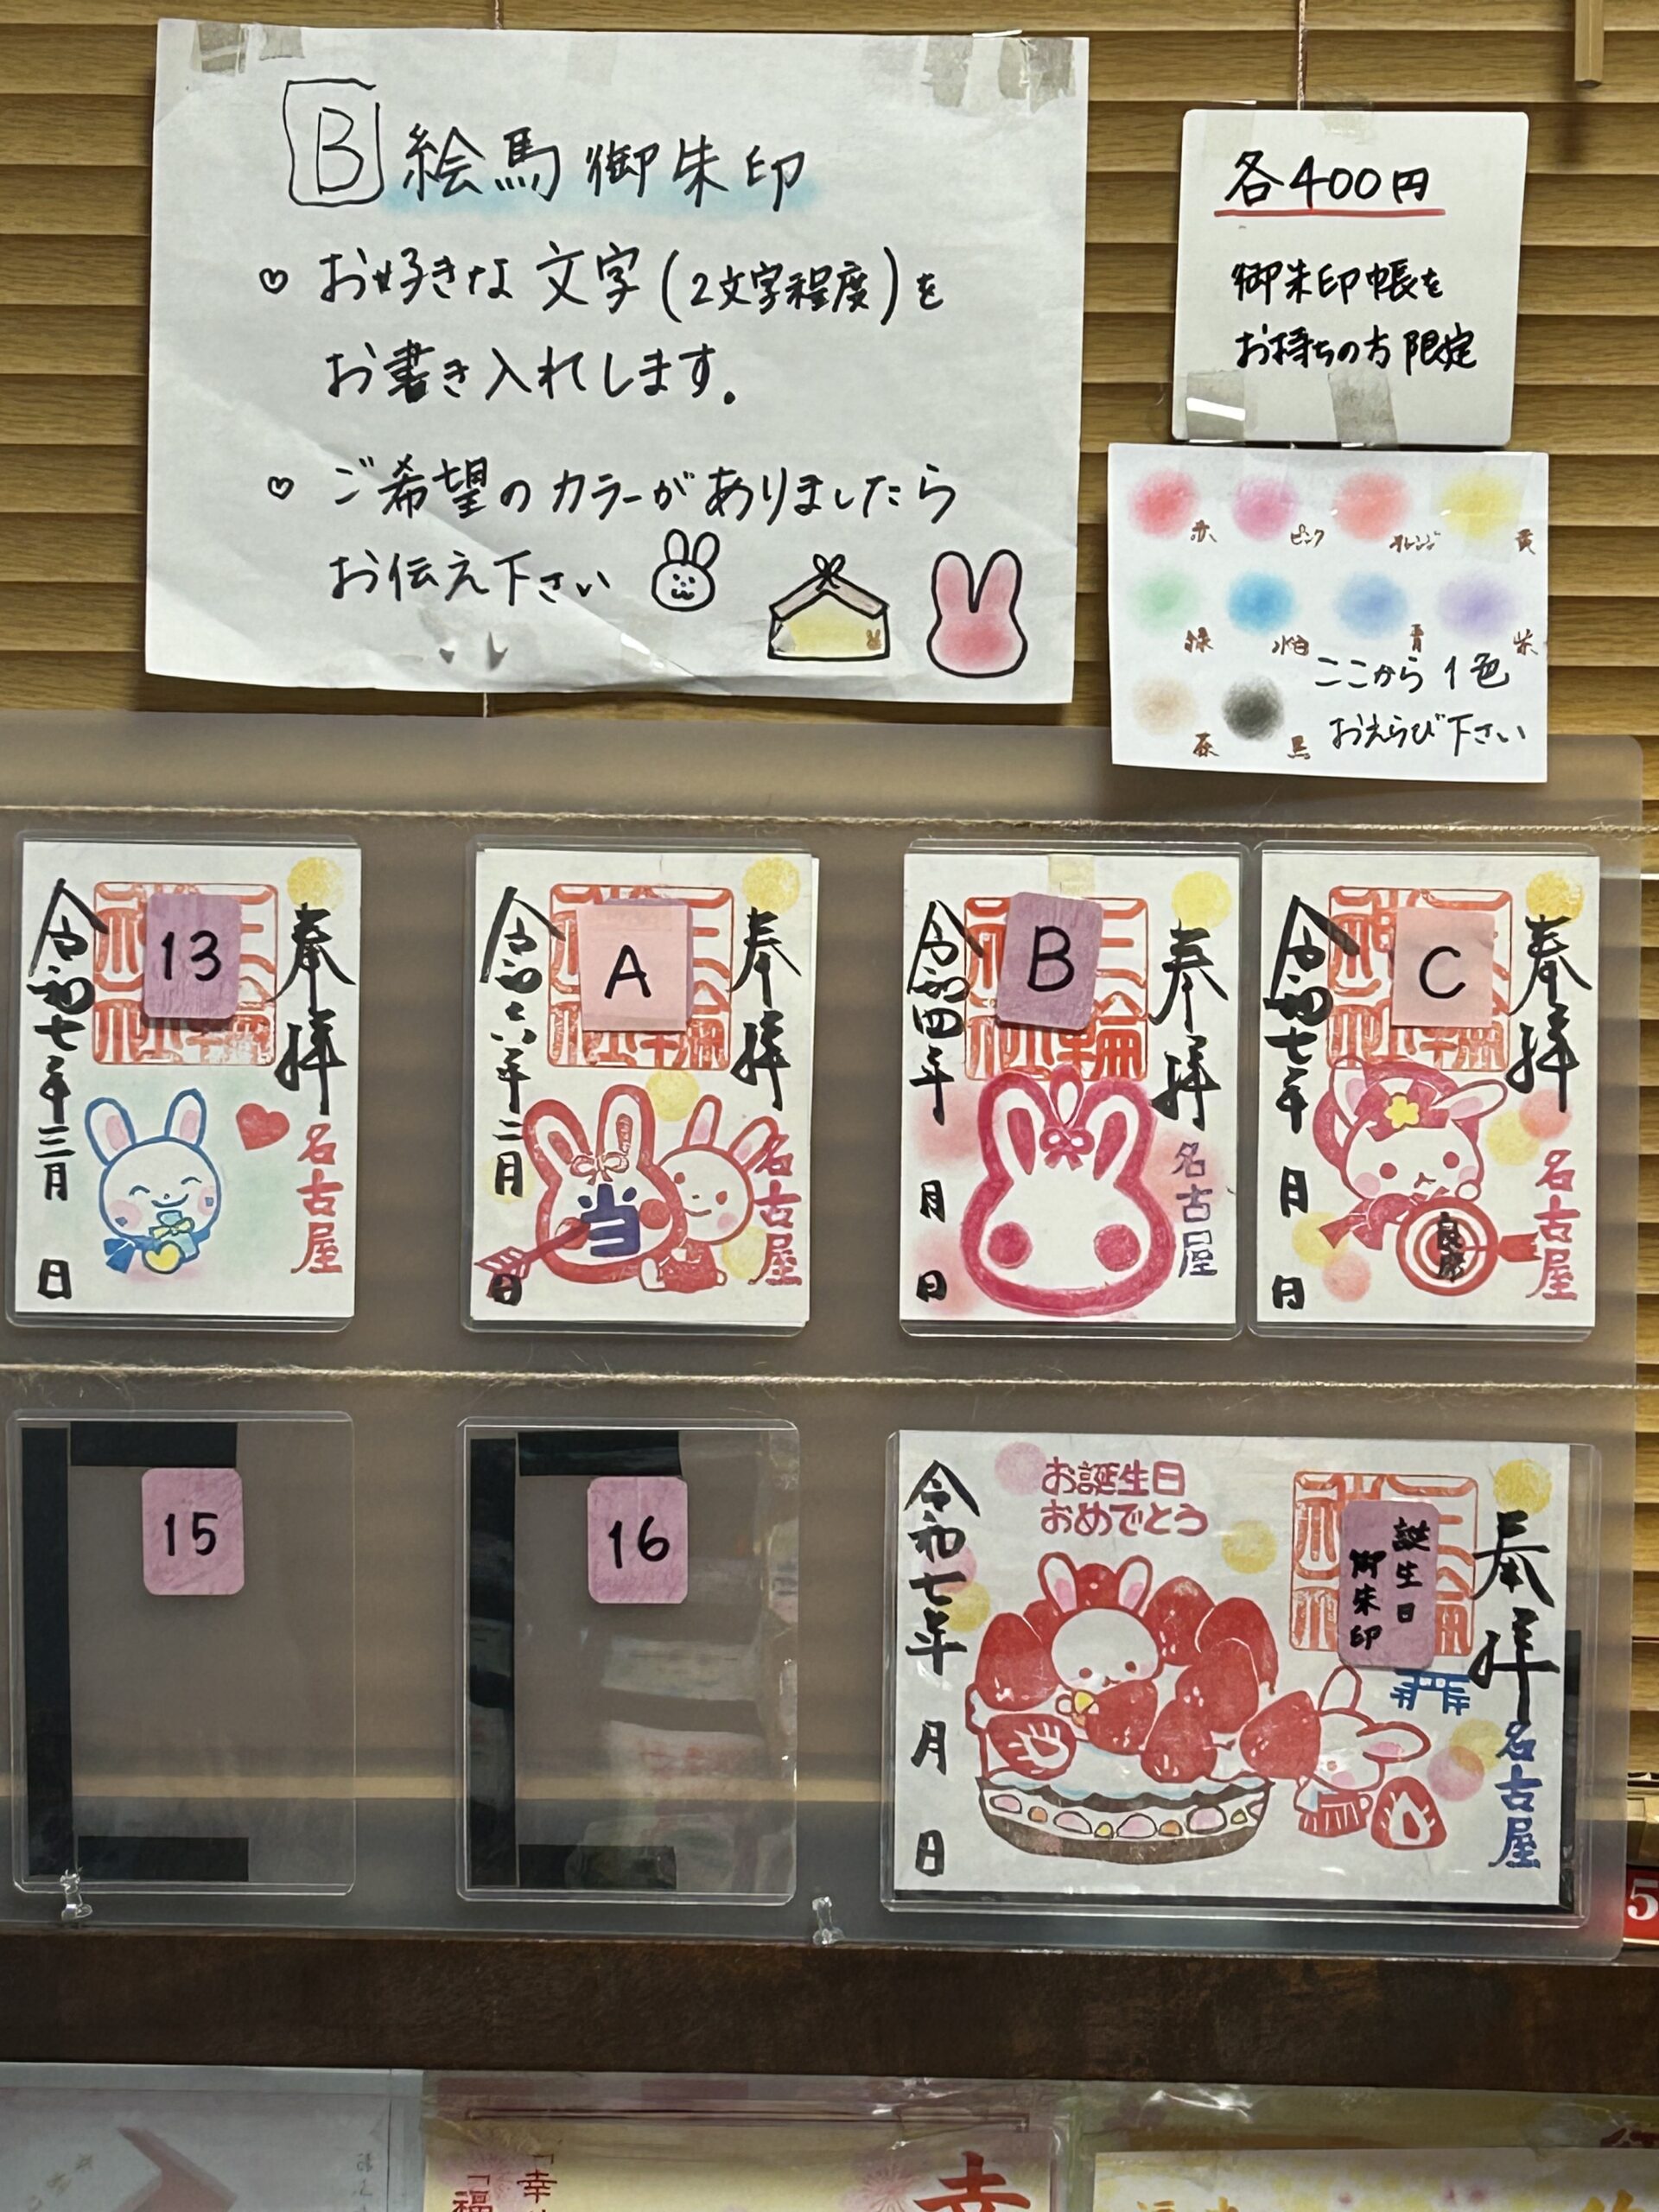 B 絵馬御朱印
♡ お好きな文字(2文字程度)を
お書き入れします。
♡ ご希望のカラーがありましたら
お伝え下さい
各400円
御朱印帳を
お持ちの方限定
赤 ピンク オレンジ 黄
緑 水色 青 紫
茶 黒
ここから1色
おえらび下さい
13
奉拝
名古屋
令和七年三月 日
A
奉拝
名古屋
当
令和六年二月 日
B
奉拝
三輪
名古屋
令和四年 月 日
C
奉拝
名古屋
令和七年 月 日
15
16
誕生日
御朱印
奉拝
名古屋
お誕生日
おめでとう
令和七年 月 日
5
「幸
「福
幸